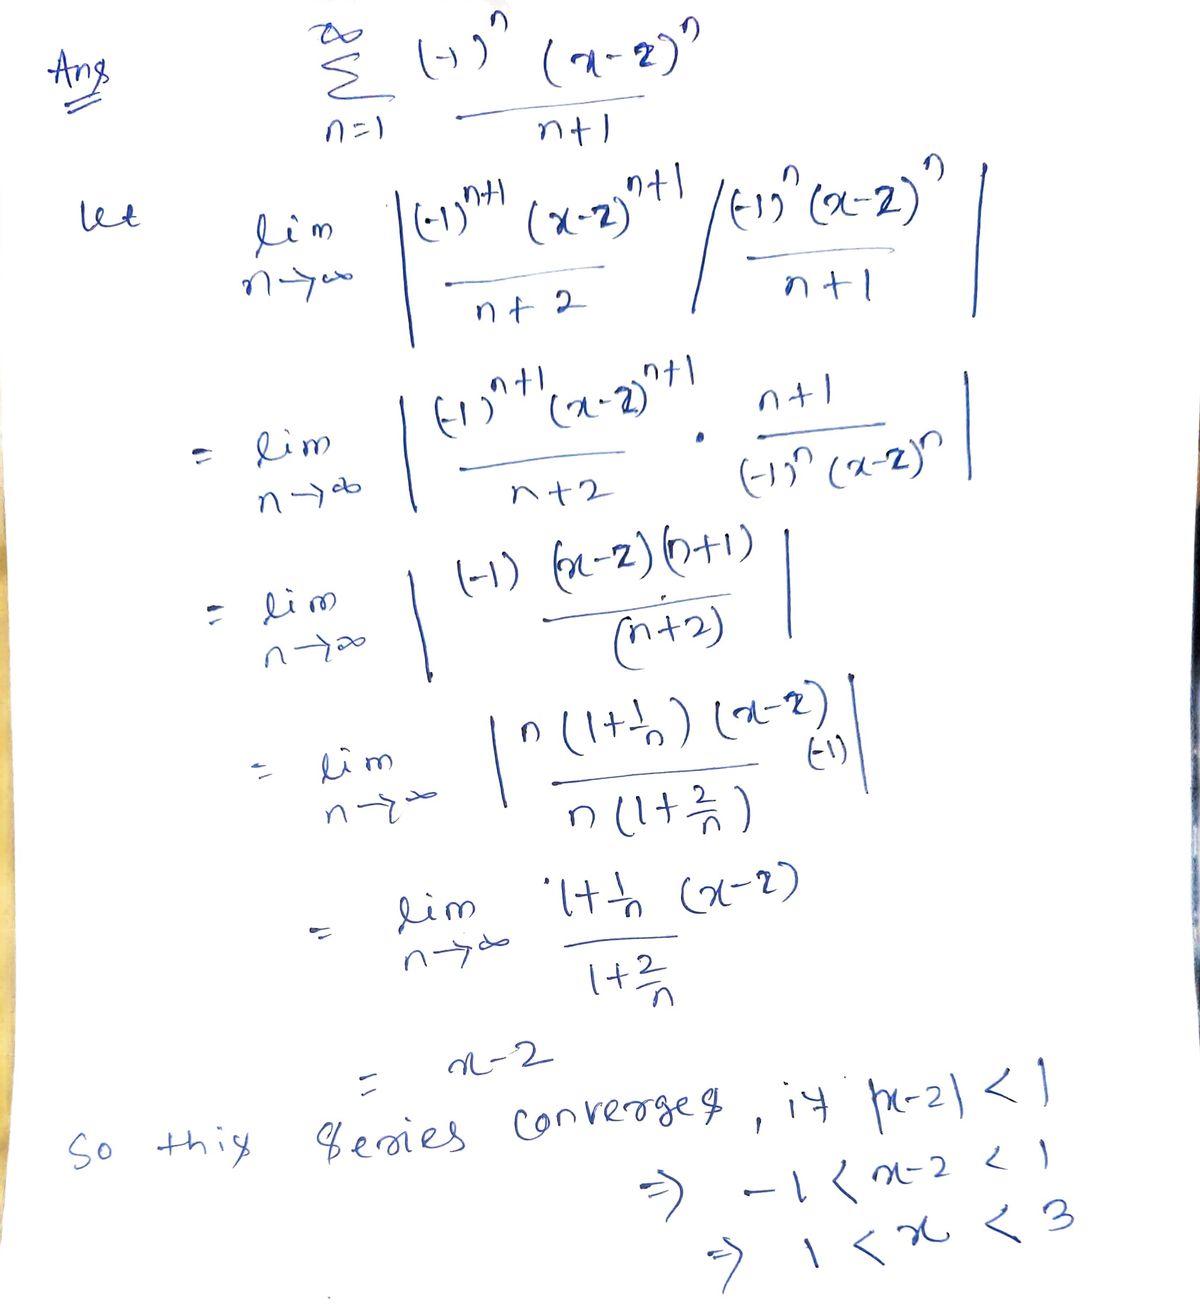 Ans ∞ Σ n=1 (-1)ⁿ (x-2)ⁿ / n+1
let lim n→∞ | (-1)ⁿ⁺¹ (x-2)ⁿ⁺¹ / n+2 / (-1)ⁿ (x-2)ⁿ / n+1 |
= lim n→∞ | (-1)ⁿ⁺¹ (x-2)ⁿ⁺¹ / n+2 · n+1 / (-1)ⁿ (x-2)ⁿ |
= lim n→∞ | (-1) (x-2) (n+1) / (n+2) |
= lim n→∞ | n (1+1/n) (x-2) (-1) / n (1+2/n) |
= lim n→∞ 1+1/n (x-2) / 1+2/n
= x-2
So this series converges, if |x-2| < 1
⇒ -1 < x-2 < 1
⇒ 1 < x < 3